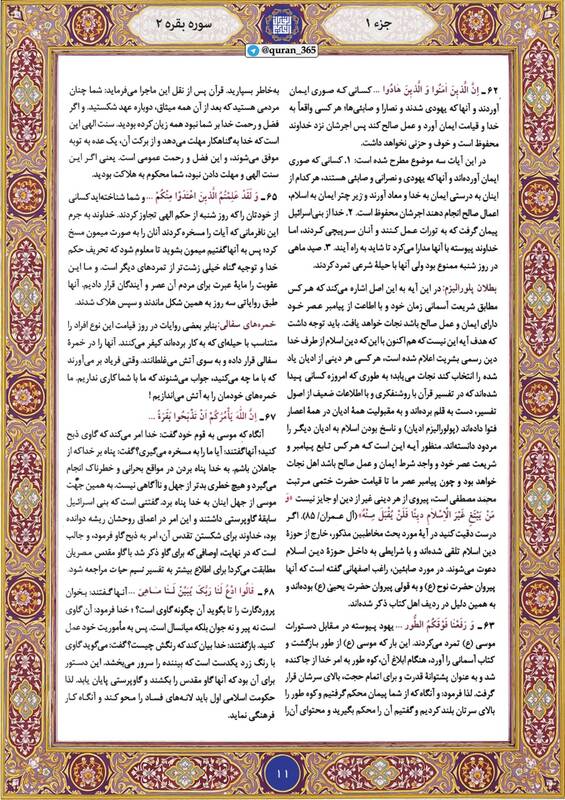 جزء ۱
سوره بقره ۲
@quran_365
۶۲ ـ اِنَّ الَّذینَ آمَنُوا وَ الَّذینَ هادُوا ... کسانی که صوری ایمان
آوردند و آنها که یهودی شدند و نصارا و صابئی‌ها؛ هر کسی واقعاً به
خدا و قیامت ایمان آورد و عمل صالح کند پس اجرشان نزد خداوند
محفوظ است و خوف و حزنی نخواهد داشت.
در این آیات سه موضوع مطرح شده است: ۱. کسانی که صوری
ایمان آورده‌اند و آنها که یهودی و نصرانی و صابئی هستند، هر کدام از
اینان به درستی ایمان به خدا و معاد آورند و زیر چتر ایمان به اسلام،
اعمال صالح انجام دهند اجرشان محفوظ است. ۲. خدا از بنی‌اسرائیل
پیمان گرفت که به تورات عمل کنند و آنان سرپیچی کردند، اما
خداوند پیوسته با آنها مدارا می‌کرد تا شاید به راه آیند. ۳. صید ماهی
در روز شنبه ممنوع بود ولی آنها با حیلهٔ شرعی تمرد کردند.
بطلان پلورالیزم: در این آیه به این اصل اشاره می‌کند که هر کس
مطابق شریعت آسمانی زمان خود و با اطاعت از پیامبر عصر خود
دارای ایمان و عمل صالح باشد نجات خواهد یافت. باید توجه داشت
که هدف آیه این نیست که هم اکنون با این که دین اسلام از طرف خدا
دین رسمی بشریت اعلام شده است، هر کسی هر دینی از ادیان یاد
شده را انتخاب کند نجات می‌یابد؛ به طوری که امروزه کسانی پیدا
شده‌اند که در تفسیر قرآن با روشنفکری و با اطلاعات ضعیف از اصول
تفسیر، دست به قلم برده‌اند و به مقبولیت همهٔ ادیان در همهٔ اعصار
فتوا داده‌اند (پلورالیزم ادیان) و ناسخ بودن اسلام به ادیان دیگر را
مردود دانسته‌اند. منظور آیه این است که هر کس تابع پیامبر و
شریعت عصر خود و واجد شرط ایمان و عمل صالح باشد اهل نجات
خواهد بود و چون پیامبر عصر ما تا قیامت حضرت ختمی مرتبت
محمد مصطفی است، پیروی از هر دینی غیر از دین او جایز نیست «وَ
مَنْ یَبْتَغِ غَیْرَ الْاِسْلامِ دیناً فَلَنْ یُقْبَلَ مِنْهُ» (آل عمران/ ۸۵). اگر
درست دقت کنید در آیهٔ مورد بحث مخاطبین مذکور، خارج از حوزهٔ
دین اسلام تلقی شده‌اند و با شرایطی به داخل حوزهٔ دین اسلام
دعوت می‌شوند. در مورد صابئین، راغب اصفهانی گفته است که آنها
پیروان حضرت نوح (ع) و به قولی پیروان حضرت یحیی (ع) بوده‌اند و
به همین دلیل در ردیف اهل کتاب ذکر شده‌اند.
۶۳ ـ وَ رَفَعْنا فَوْقَکُمُ الطُّورَ ... یهود پیوسته در مقابل دستورات
موسی (ع) تمرد می‌کردند. این بار که موسی (ع) از طور بازگشت و
کتاب آسمانی را آورد، هنگام ابلاغ آن، کوه طور به امر خدا از جا کنده
شد و به عنوان پشتوانهٔ قدرت و برای اتمام حجت، بالای سرشان قرار
گرفت. لذا فرمود: و آنگاه که از شما پیمان محکم گرفتیم و کوه طور را
بالای سرتان بلند کردیم و گفتیم آن را محکم بگیرید و محتوای آن را
به‌خاطر بسپارید. قرآن پس از نقل این ماجرا می‌فرماید: شما چنان
مردمی هستید که بعد از آن همه میثاق، دوباره عهد شکستید. و اگر
فضل و رحمت خدا بر شما نبود همه زیان کرده بودید. سنت الهی این
است که خدا به گناهکار مهلت می‌دهد و از برکت آن، یک عده به توبه
موفق می‌شوند، و این فضل و رحمت عمومی است. یعنی اگر این
سنت الهی و مهلت دادن نبود، شما محکوم به هلاکت بودید.
۶۵ ـ وَ لَقَدْ عَلِمْتُمُ الَّذینَ اعْتَدَوْا مِنْکُمْ ... و شما شناخته‌اید کسانی
از خودتان را که روز شنبه از حکم الهی تجاوز کردند. خداوند به جرم
این نافرمانی که آیات را مسخره کردند آنان را به صورت میمون مسخ
کرد؛ پس به آنها گفتیم میمون بشوید تا معلوم شود که تحریف حکم
خدا و توجیه گناه خیلی زشت‌تر از تمردهای دیگر است. و ما این
عقوبت را مایهٔ عبرت برای مردم آن عصر و آیندگان قرار دادیم. آنها
طبق روایاتی سه روز به همین شکل ماندند و سپس هلاک شدند.
خمره‌های سفالی: بنابر بعضی روایات در روز قیامت این نوع افراد را
متناسب با حیله‌ای که به کار برده‌اند کیفر می‌کنند. آنها را در خمرهٔ
سفالی قرار داده و به سوی آتش می‌غلطانند. وقتی فریاد بر می‌آورند
که با ما چه می‌کنید، جواب می‌شنوند که ما با شما کاری نداریم. ما
خمره‌های خودمان را به آتش می‌اندازیم !
۶۷ ـ اِنَّ اللّٰهَ یَأْمُرُکُمْ اَنْ تَذْبَحُوا بَقَرَةً ...
آنگاه که موسی به قوم خود گفت: خدا امر می‌کند که گاوی ذبح
کنید؛ آنها گفتند: آیا ما را به مسخره می‌گیری؟ گفت: پناه بر خدا که از
جاهلان باشم. به خدا پناه بردن در مواقع بحرانی و خطرناک انجام
می‌گیرد و هیچ خطری بدتر از جهل و ناآگاهی نیست. به همین جهت
موسی از جهل اینان به خدا پناه برد. گفتنی است که بنی اسرائیل
سابقهٔ گاوپرستی داشتند و این امر در اعماق روحشان ریشه دوانده
بود، خداوند برای شکستن تقدس آن، امر به ذبح گاو فرمود، و جالب
است که در نهایت، اوصافی که برای گاو ذکر شد با گاو مقدس مصریان
مطابقت می‌کرد! برای اطلاع بیشتر به تفسیر نسیم حیات مراجعه شود.
۶۸ ـ قالُوا ادْعُ لَنا رَبَّکَ یُبَیِّنْ لَنا ما هِیَ ... آنها گفتند: بخوان
پروردگارت را تا بگوید آن چگونه گاوی است؟ ؛ خدا فرمود: آن گاوی
است نه پیر و نه جوان بلکه میانسال است. پس به مأموریت خود عمل
کنید. باز گفتند: خدا بیان کند که رنگش چیست؟ گفت: می‌گوید گاوی
با رنگ زرد یکدست است که بیننده را سرور می‌بخشد. این دستور
برای آن بود که آنها گاو مقدس را بکشند و گاوپرستی پایان یابد. لذا
حکومت اسلامی اول باید لانه‌های فساد را محو کند و آنگاه کار
فرهنگی نماید.
۱۱